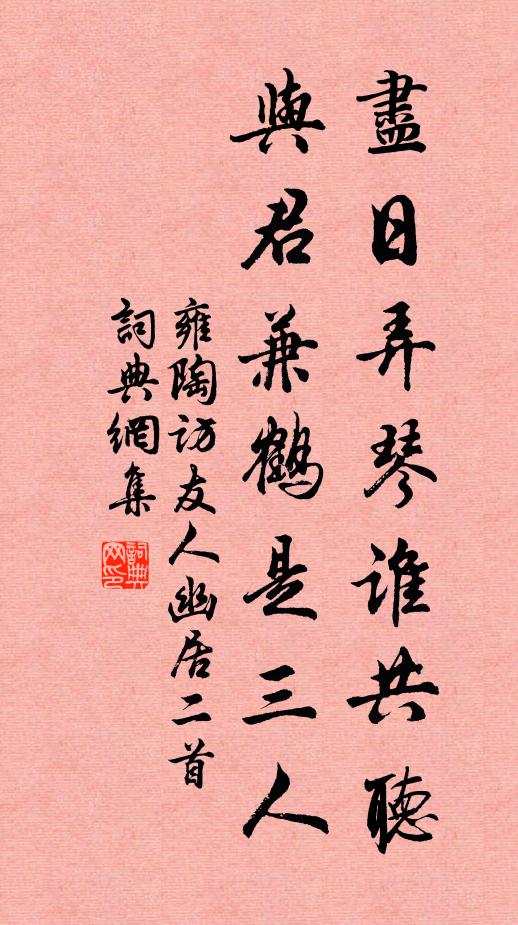 盡日弄琴誰共聽
與君兼鶴是三人
雍陶訪友人幽居二首
詞典網集
詞典網印